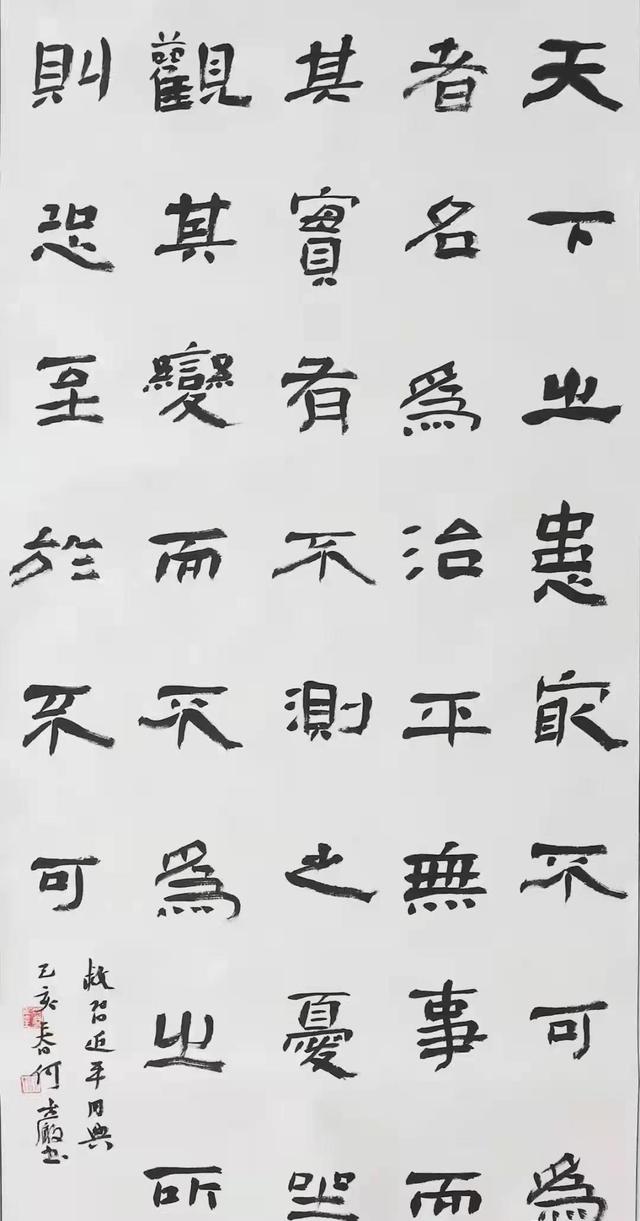 天下之患最不可為
者名為治平無事而
其實有不測之憂坐
觀其變而不為之所
則恐至於不可
習近平用典
己亥春何書